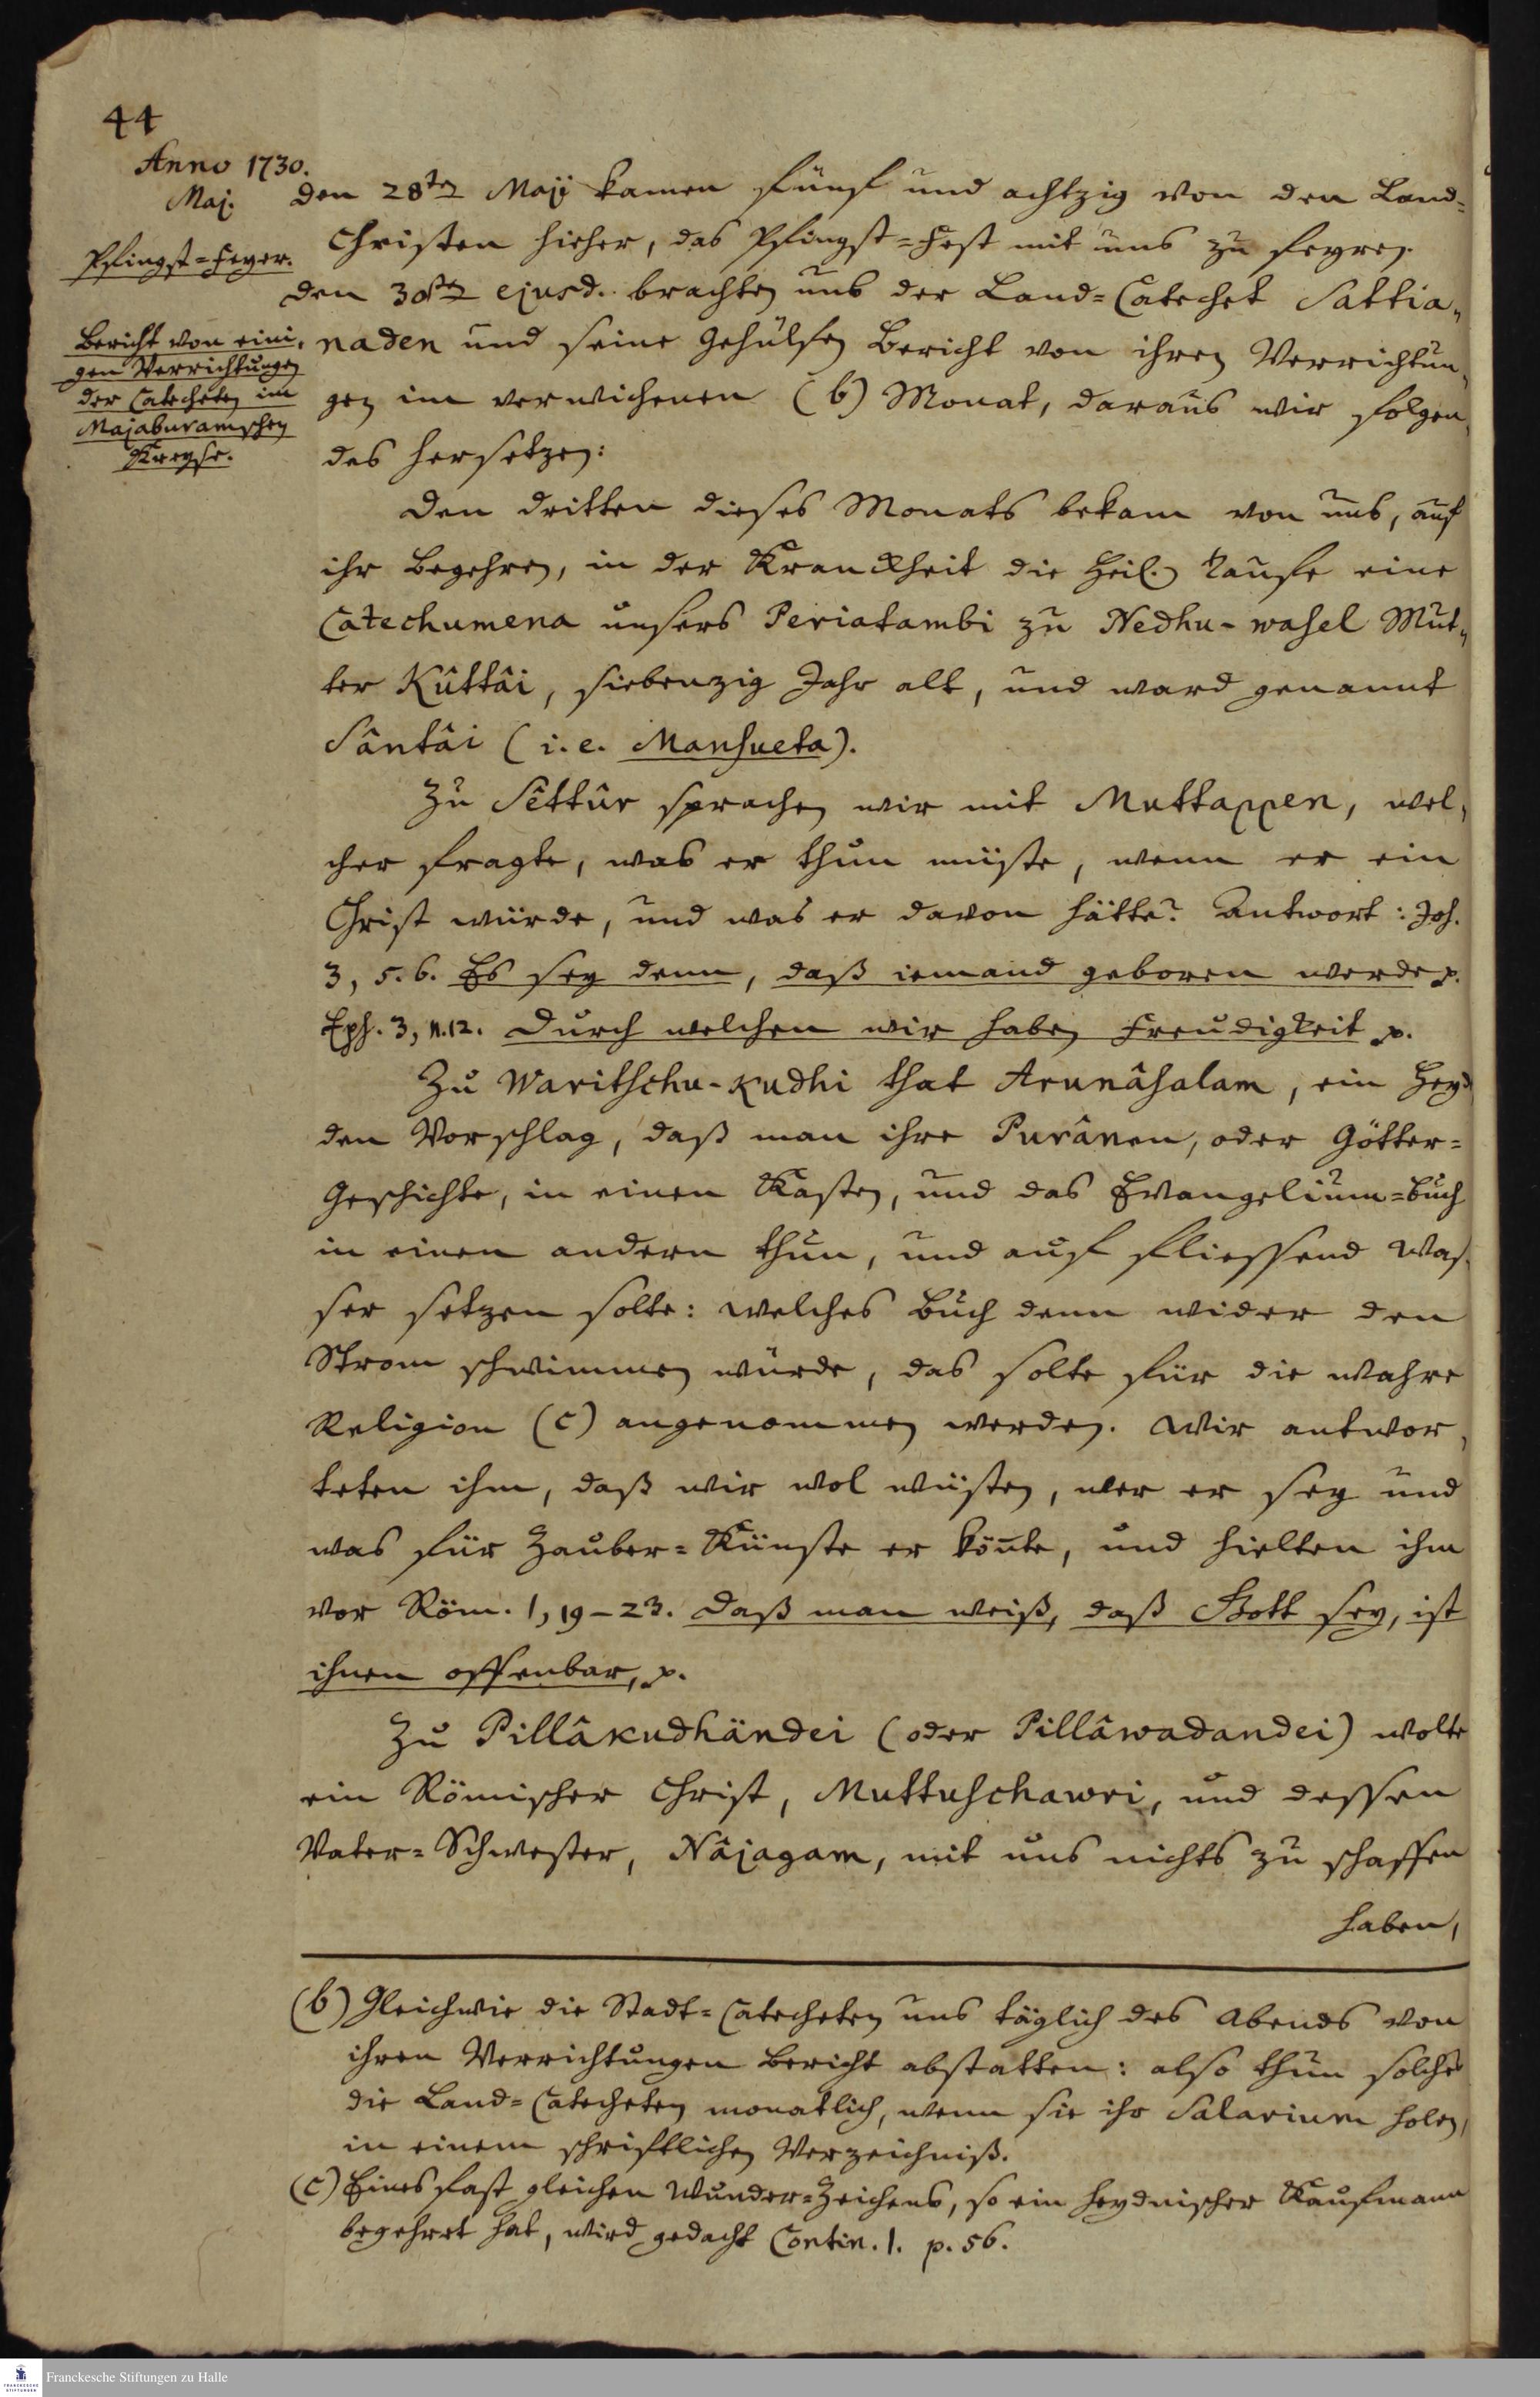 44
Anno 1730.
Maj.
Pfingst=Feyer.
Bericht von eini,
gen Verrichtungen
der Catecheten im
Majaburamschen
Kreyse.
den 28ten Maji kamen fünf und achtzig von den Land=
Christen hieher, das Pfingst=Fest mit uns zu feyren.
den 30sten ejusd. brachten uns der Land=Catechet Sattia„
naden und seine Gehülfen Bericht von ihren Verrichtun„
gen im verwichenen (b) Monat, daraus wir folgen„
des hersetzen:
Den dritten dieses Monats bekam von uns, auf
ihr Begehren, in der Kranckheit die Heil. Taufe eine
Catechumena unsers Periatambi zu Nedhu-wasel Mut„
ter Kûttâi, siebenzig Jahr alt, und ward genannt
Sântâi (i.e. Mansueta).
Zu Sêttûr sprachen wir mit Muttappen, wel,
cher fragte, was er thun müste, wenn er ein
Christ würde, und was er davon hätte? Antwort: Joh.
3, 5.6. Es sey denn, daß iemand geboren werde p.
Eph. 3, v.12. Durch welchen wir haben Freudigkeit p.
Zu Waritschu-kudhi that Arunâsalam, ein Hey=
den Vorschlag, daß man ihre Purânen, oder Götter=
Geschichte, in einen Kasten, und das Evangelium=Buch
in einen andern thun, und auf fliessend Was,
ser setzen solte: welches Buch denn wider den
Strom schwimmen würde, das solte für die wahre
Religion (c) angenommen werden. Wir antwor,
teten ihm, daß wir wol wüsten, wer er sey und
was für Zauber=Künste er kön̄te, und hielten ihm
vor Röm. 1, 19-23. Daß man weiß, daß Gott sey, ist
ihnen offenbar, p.
Zu Pillâkudhändei (oder Pillâwadandei) wolte
ein Römischer Christ, Muttuschawri, und dessen
Vater=Schwester, Nâjagam, mit uns nichts zu schaffen
haben,
(b) Gleichwie die Stadt=Catecheten uns täglich des Abends von
ihren Verrichtungen Bericht abstatten: also thun solches
die Land=Catecheten monatlich, wenn sie ihr Salarium holen,
in einem schriftlichen Verzeichniß.
(c) Eines fast gleichen Wunder=Zeichens, so ein heydnischer Kaufmann
begehret hat, wird gedacht Contin. 1. p. 56.
Franckesche Stiftungen zu Halle